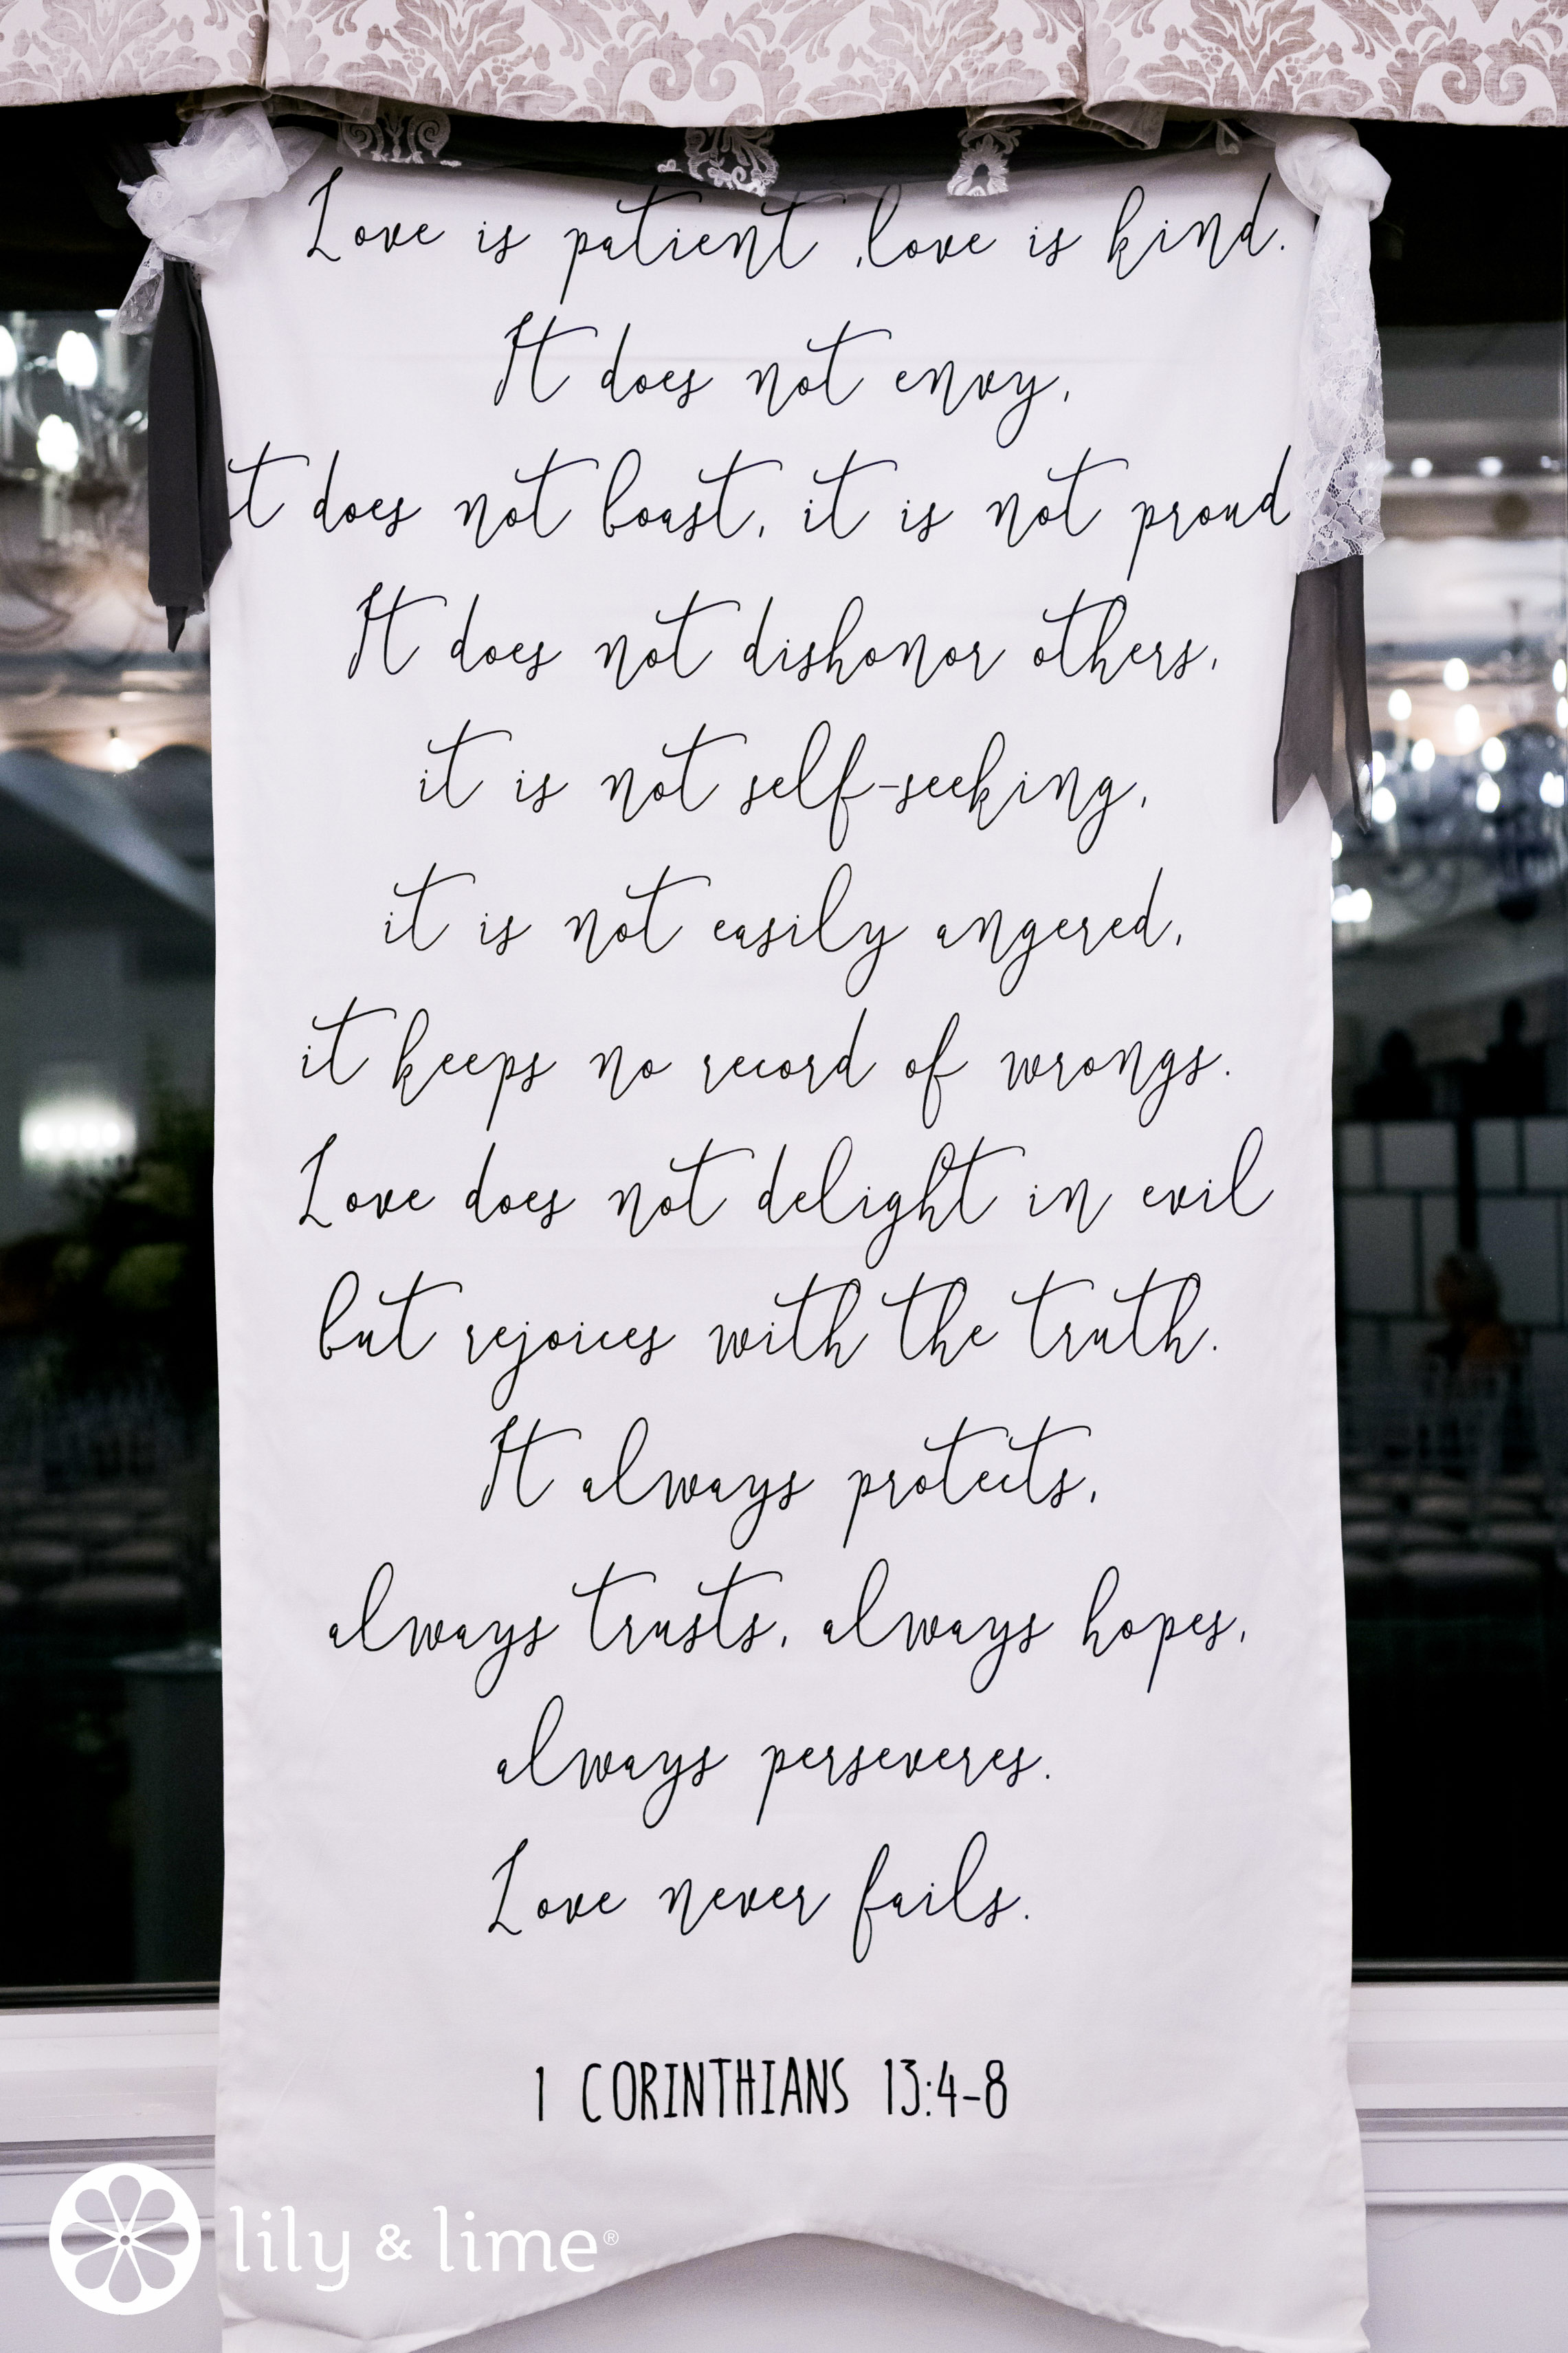 Love is patient ,love is kind.
It does not envy,
it does not boast, it is not proud
It does not dishonor others,
it is not self-seeking,
it is not easily angered,
it keeps no record of wrongs.
Love does not delight in evil
but rejoices with the truth.
It always protects,
always trusts, always hopes,
always perseveres.
Love never fails.
1 CORINTHIANS 13:4-8
lily & lime®